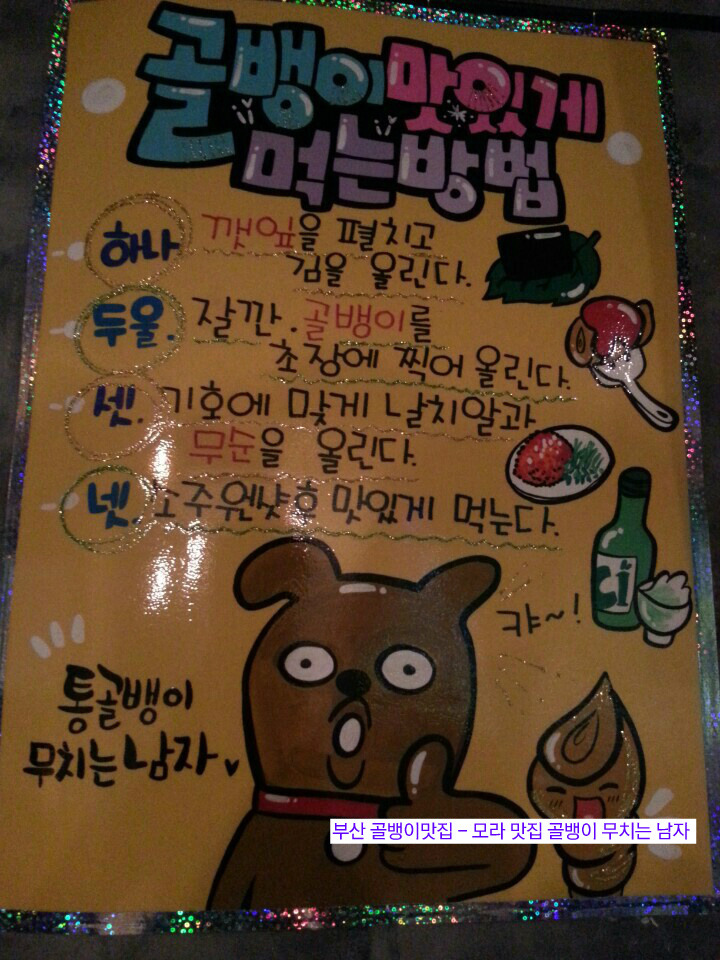 골뱅이맛있게
먹는방법
하나 깻잎을 펼치고
김을 올린다.
두울. 잘깐. 골뱅이를
초장에 찍어 올린다.
셋. 기호에 맞게 날치알과
무순을 올린다.
넷. 소주원샷후 맛있게 먹는다.
캬~!
통골뱅이
무치는 남자
부산 골뱅이맛집 - 모라 맛집 골뱅이 무치는 남자